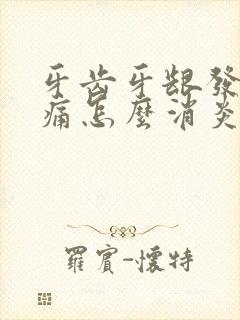 牙齒牙齦發
痛怎麼消炎
羅賓-懷特